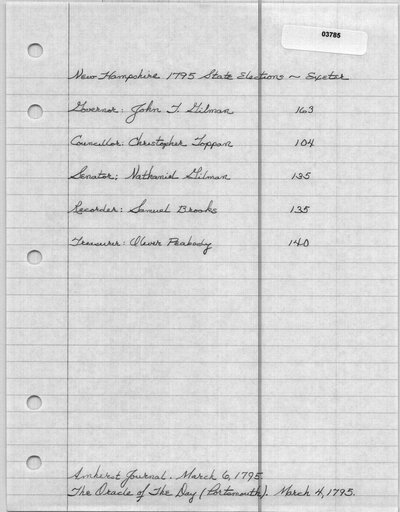 03785
New Hampshire 1795 State Elections ~ Exeter
Governor: John T. Gilman 163
Councillor: Christopher Toppan 104
Senator; Nathaniel Gilman 135
Recorder: Samuel Brooks 135
Treasurer: Oliver Peabody 140
Amherst Journal. March 6, 1795.
The Oracle of The Day (Portsmouth). March 4, 1795.